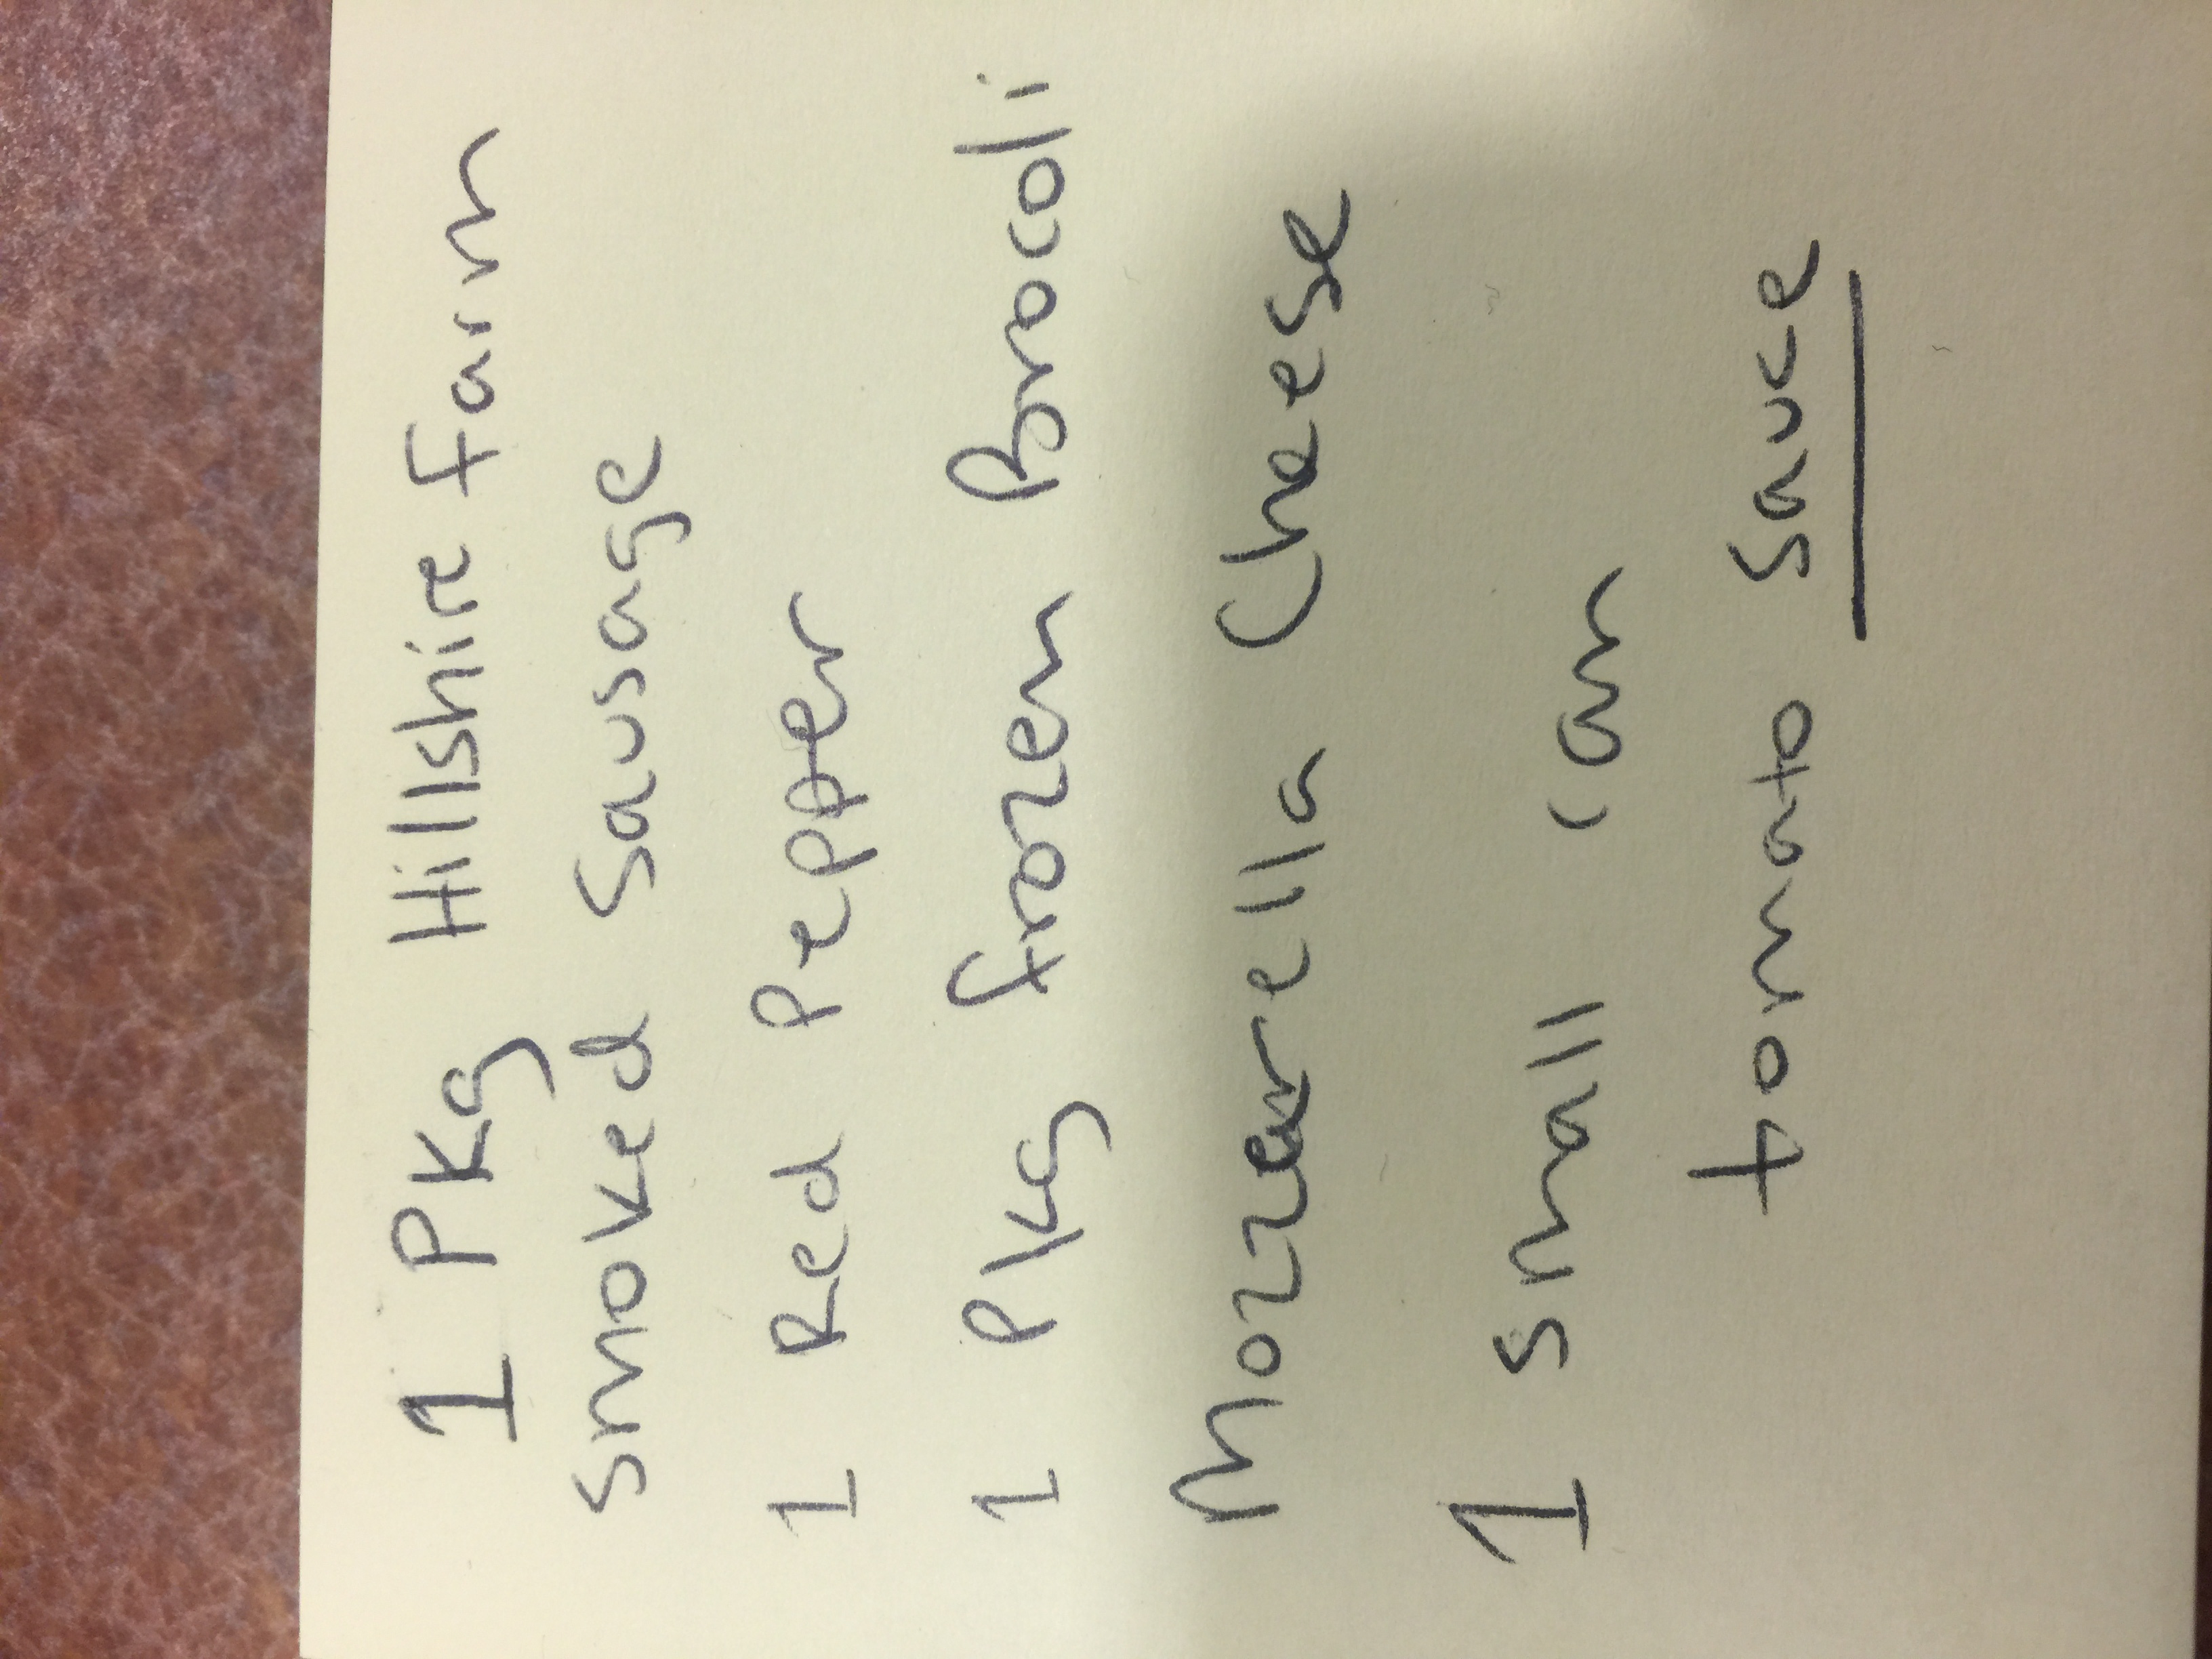 1 Pkg Hillshire Farm
Smoked Sausage
1 Red Pepper
1 Pkg frozen Brocoli
Mozzarella Cheese
1 small can
tomato sauce